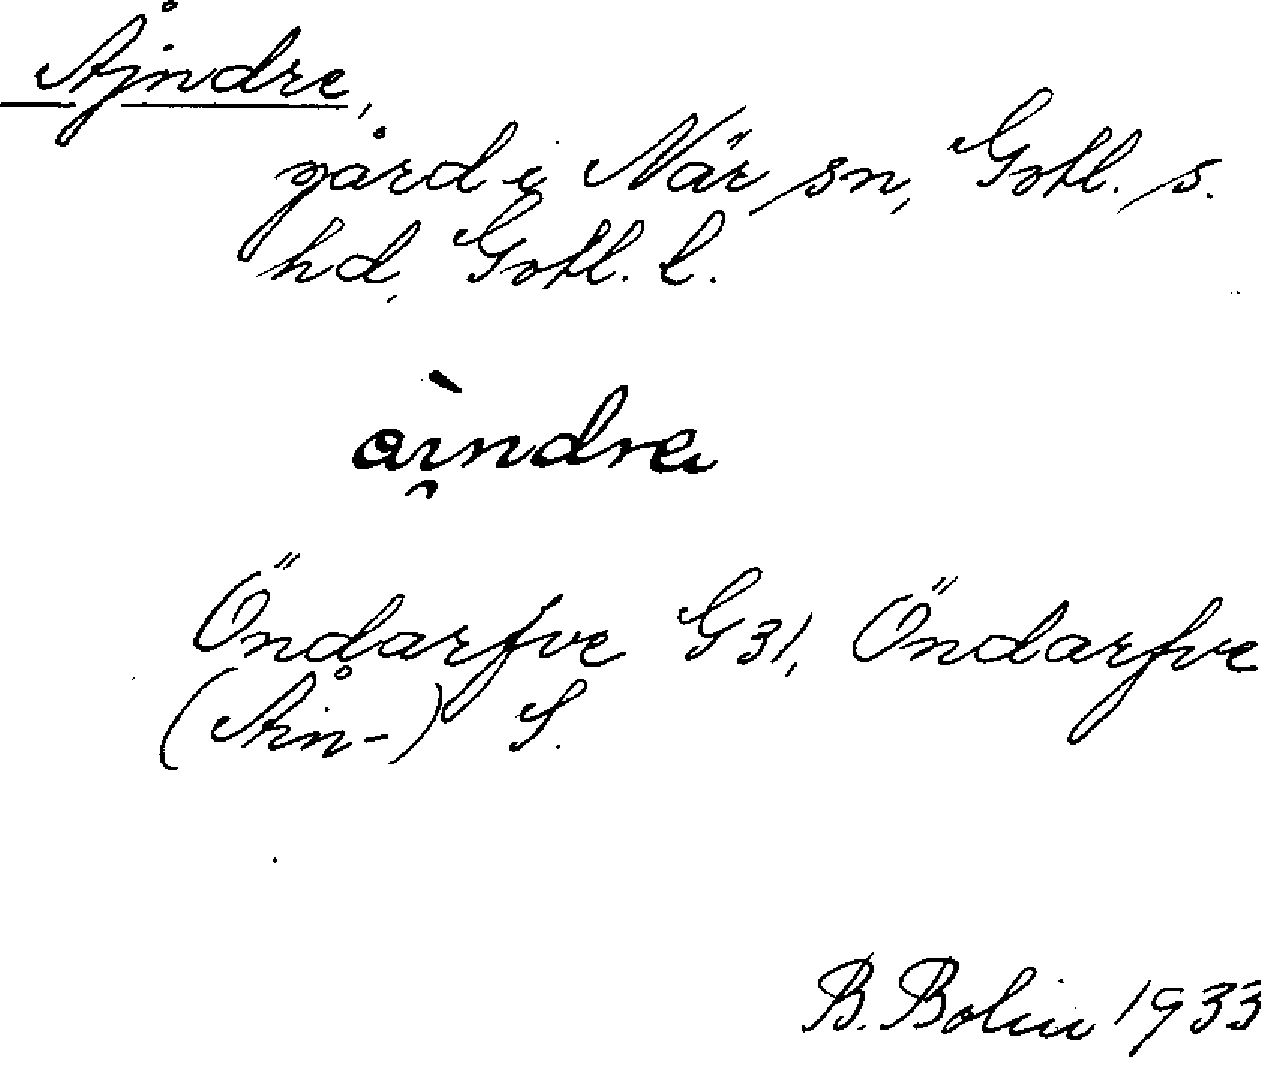 Åjndre,
gård i När sn, Gotl. s.
hd, Gotl. l.
ài̯ndre
Öndarfve G31, Öndarfve
(Åin-) S.
B. Bolin 1933